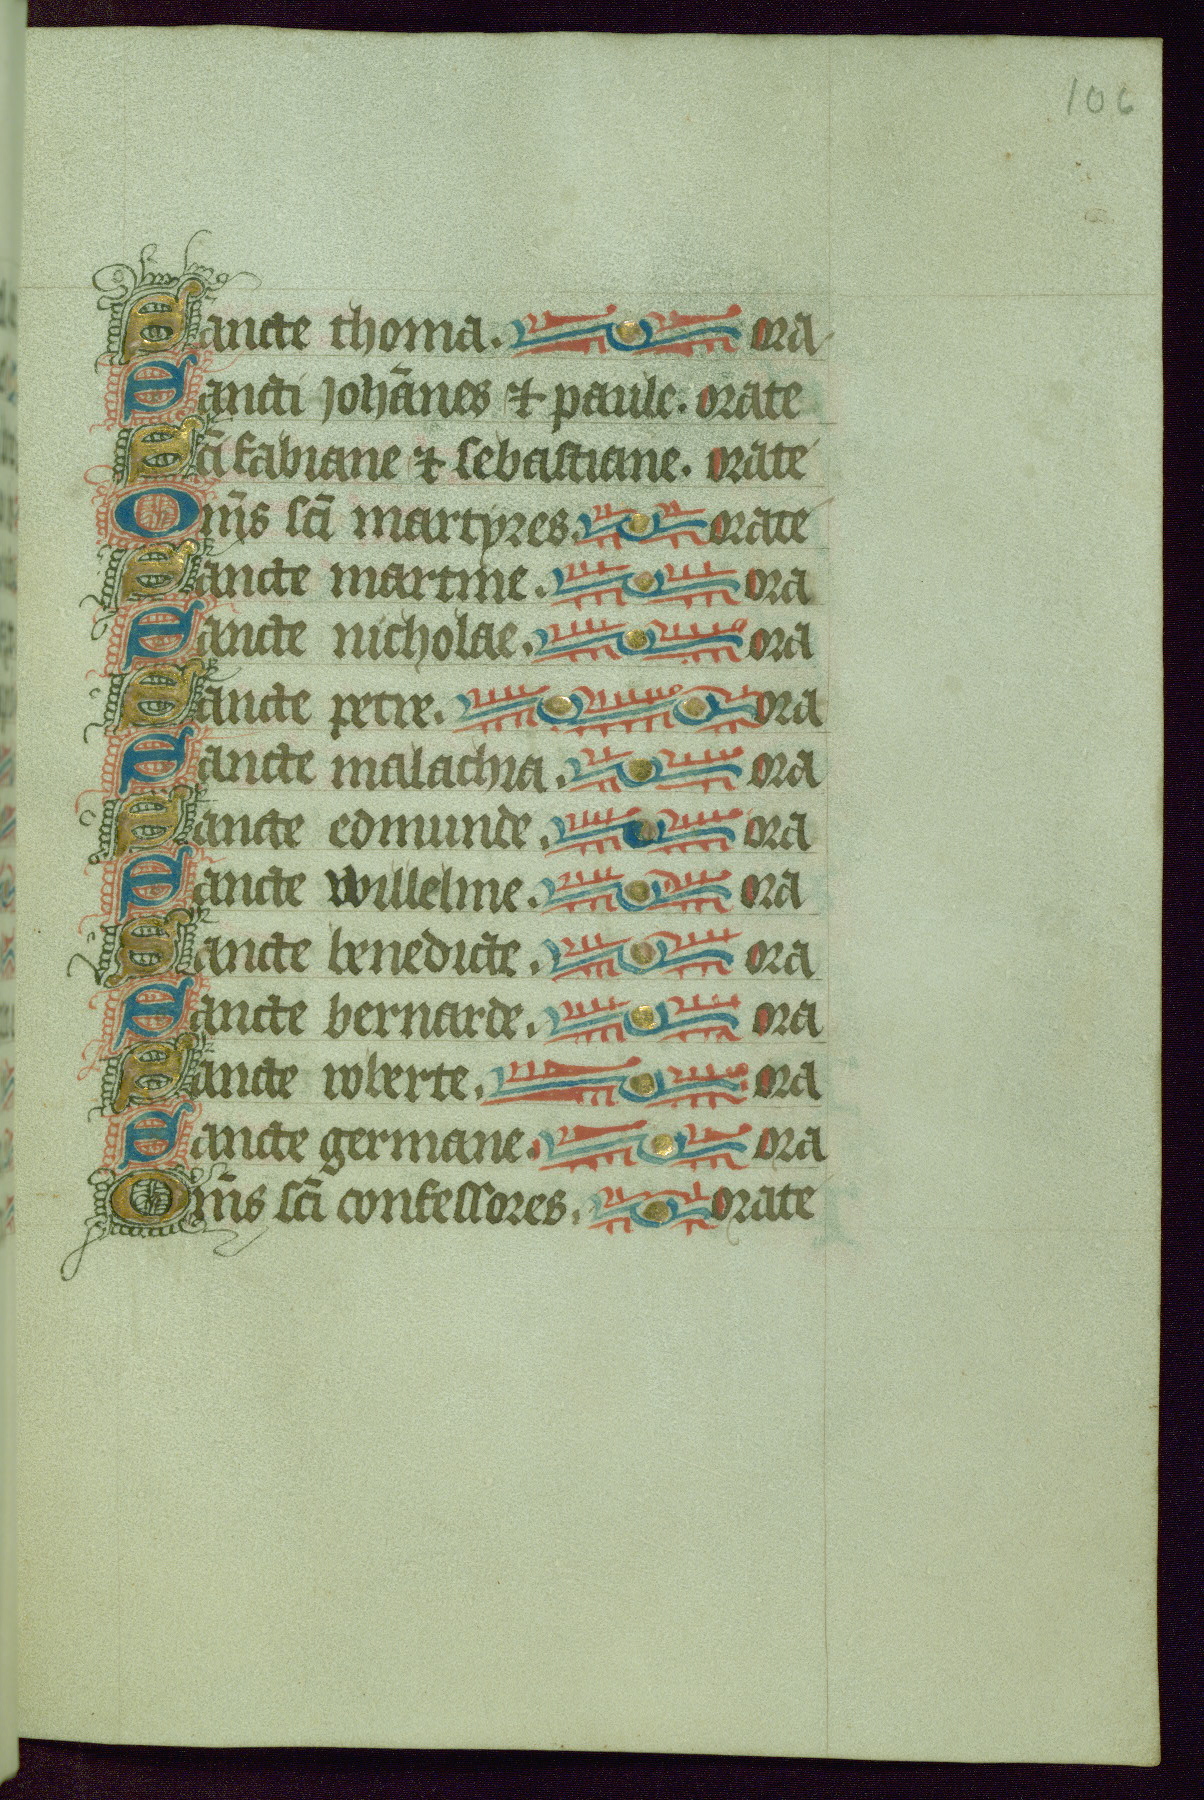 106
Sancte thoma. ora
Sancti johānes ⁊ paule. orate
Sc̄i fabiane ⁊ sebastiane. orate
Om̄s sc̄i martyres. orate
Sancte martine. ora
Sancte nicholae. ora
Sancte petre. ora
Sancte malachia. ora
Sancte edmunde. ora
Sancte willelme. ora
Sancte benedicte. ora
Sancte bernarde. ora
Sancte roberte. ora
Sancte germane. ora
Om̄s sc̄i confessores. orate